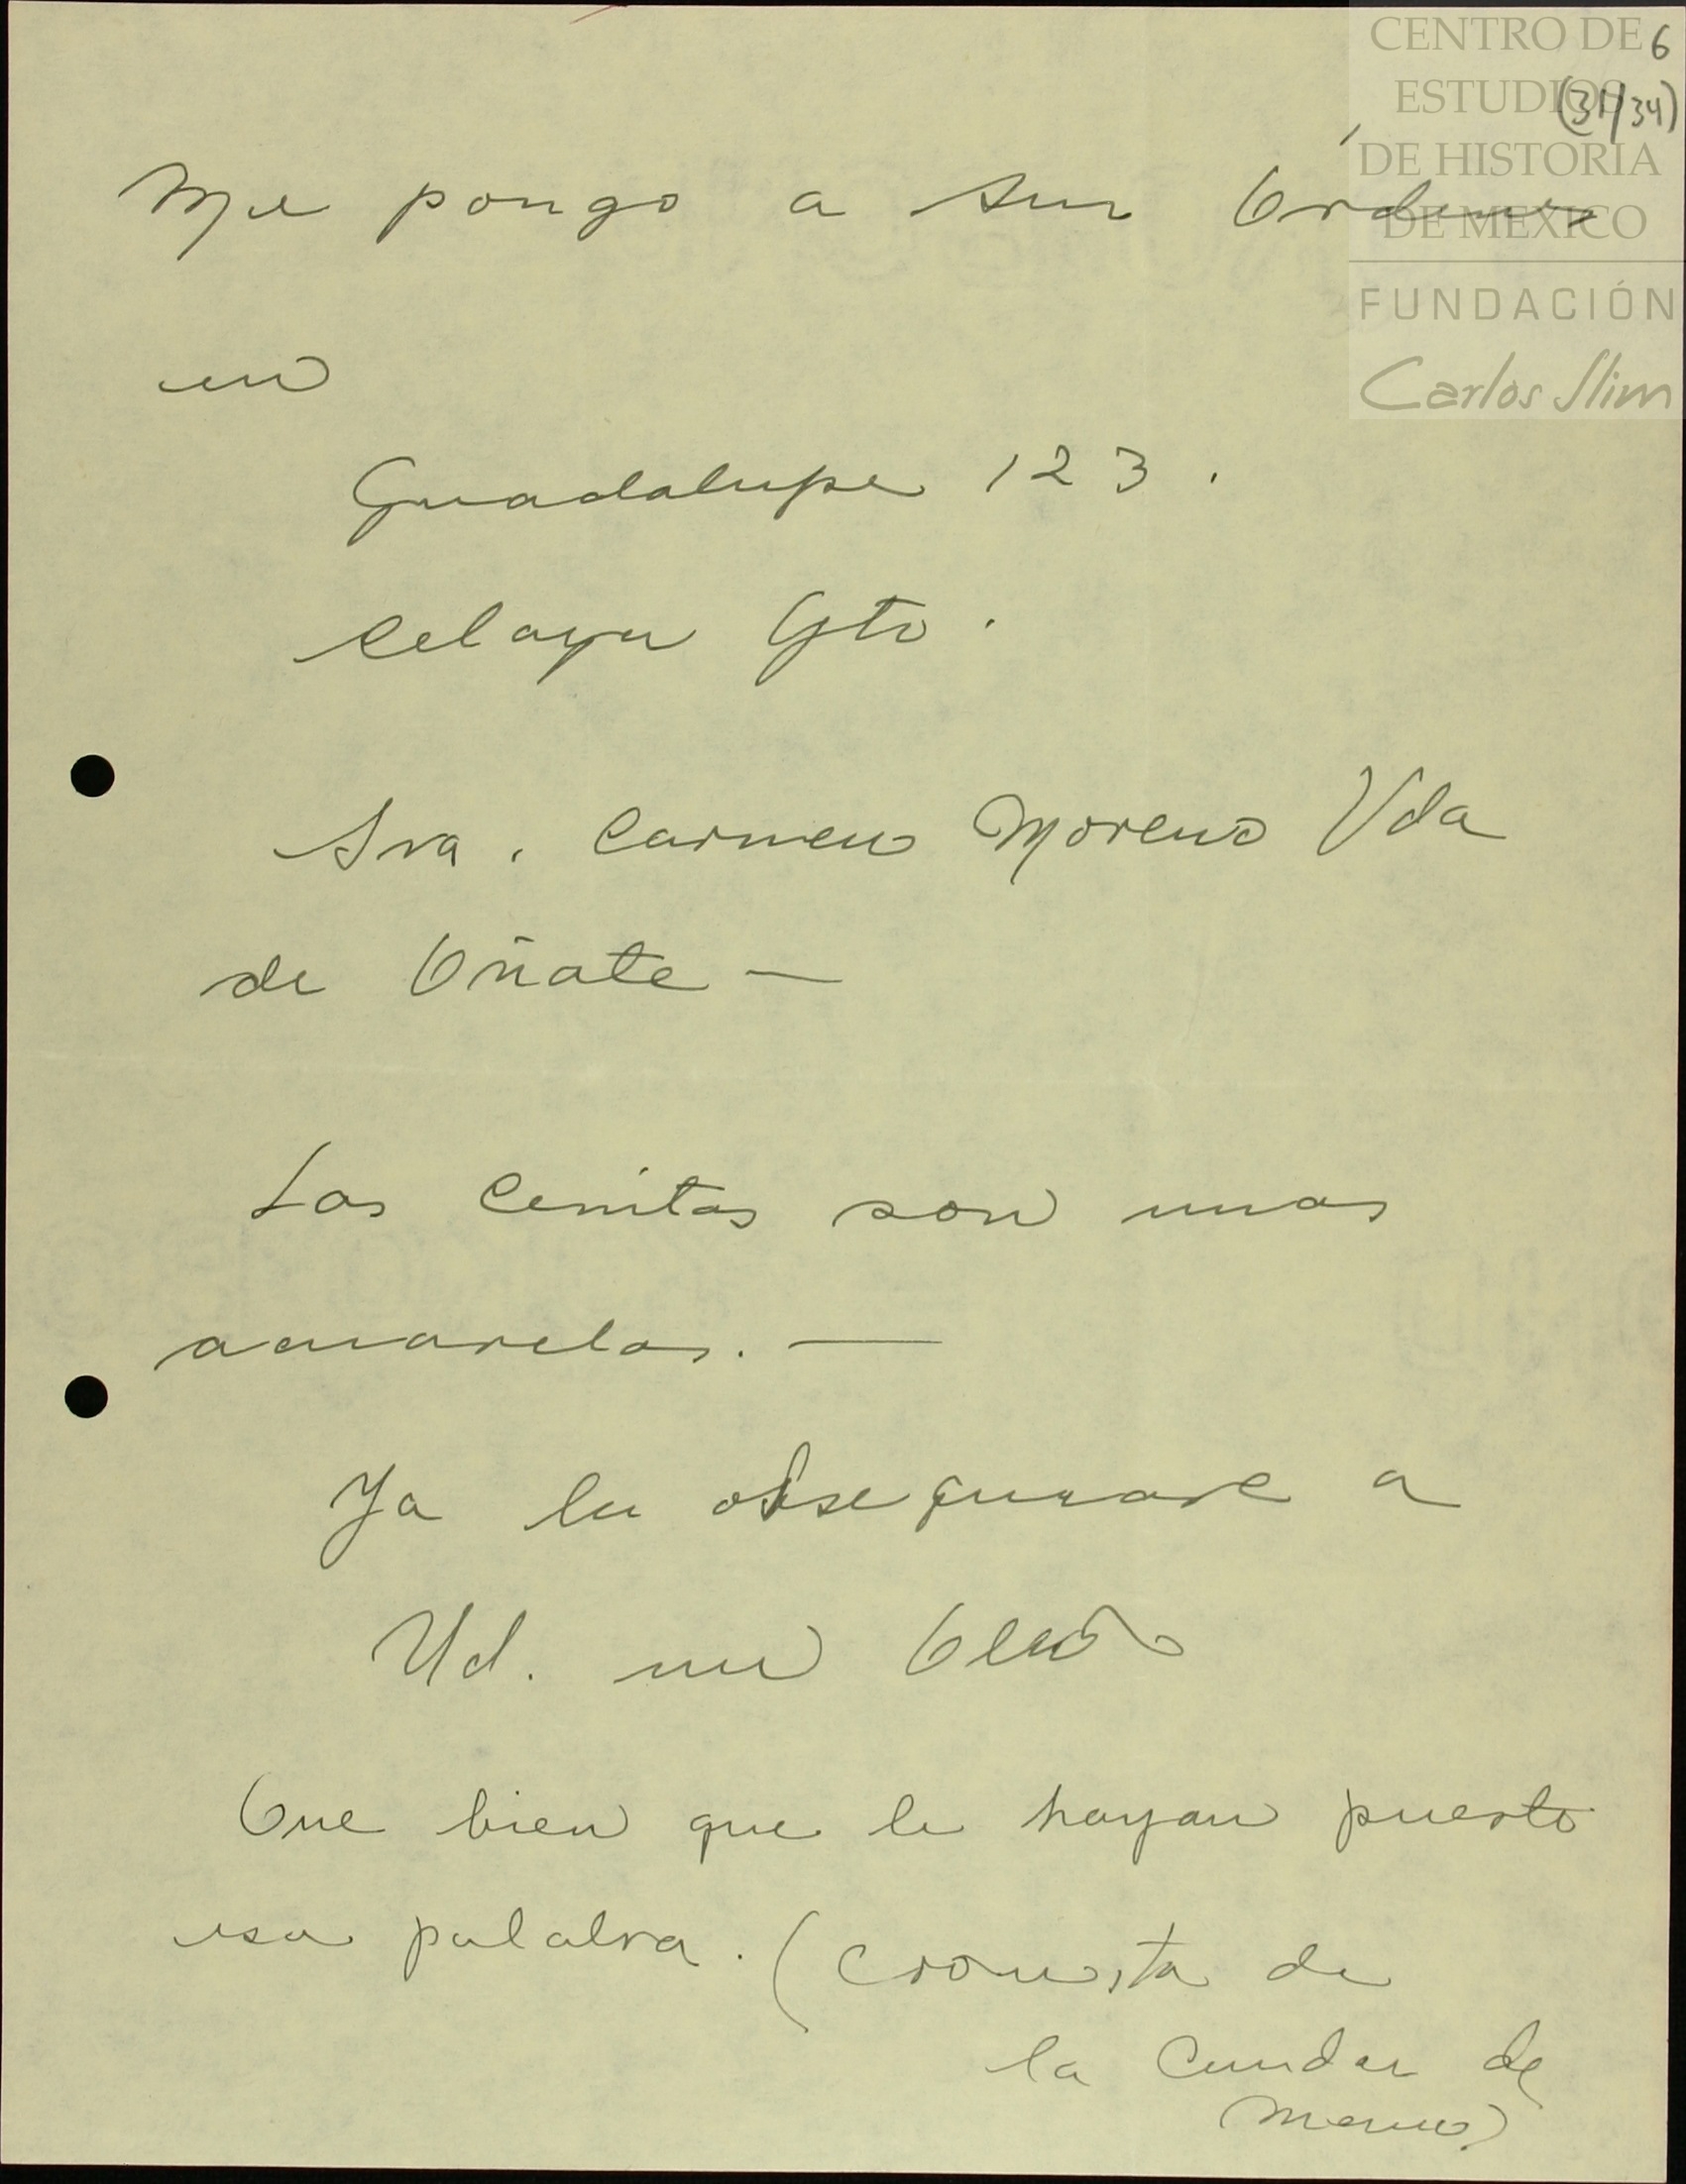 CENTRO DE
ESTUDIOS
DE HISTORIA
DE MEXICO
FUNDACIÓN
Carlos Slim
6
(31/34)
Me pongo a sus Órdenes
en
Guadalupe 123.
Celaya Gto.
Sra. Carmen Moreno Vda
de Oñate —
Las Cenitas son unas
acuarelas. —
Ya le obsequiare a
Ud. un Oleo
Que bien que le hayan puesto
esa palabra. (Cronista de
la Ciudad de